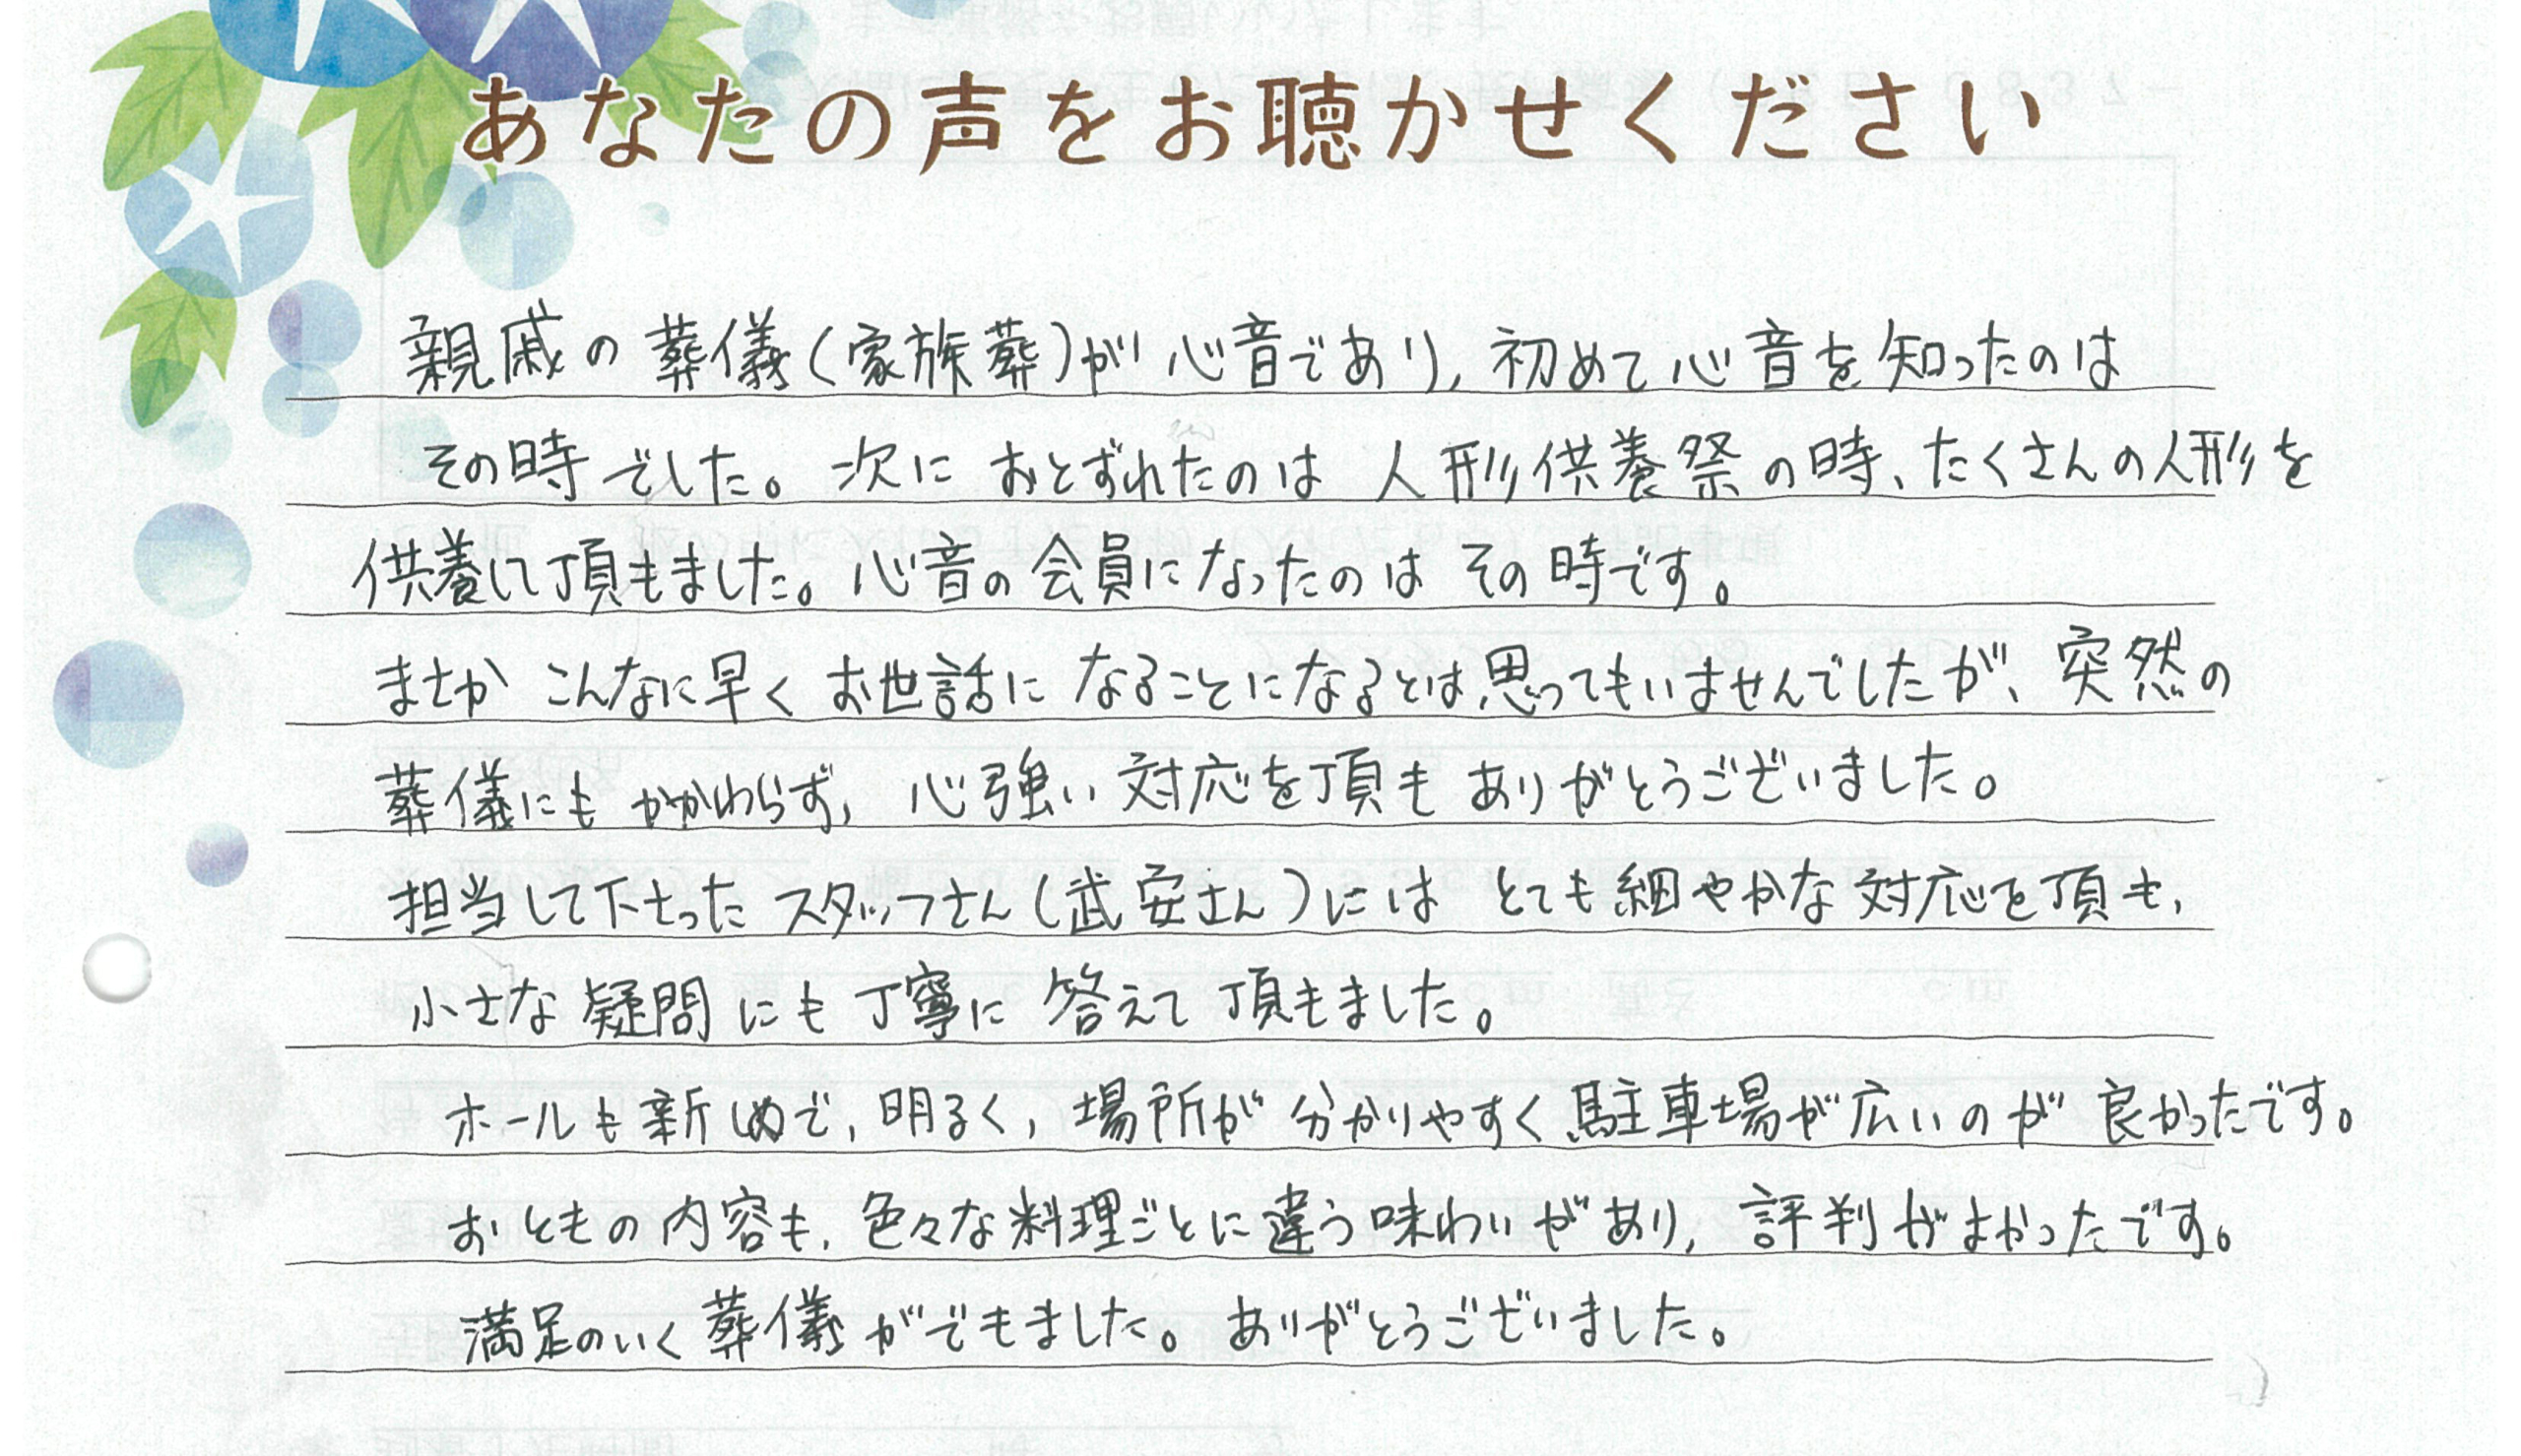 あなたの声をお聴かせください
親戚の葬儀(家族葬)が心音であり, 初めて心音を知ったのは
その時でした。次におとずれたのは人形供養祭の時、たくさんの人形を
供養して頂きました。心音の会員になったのはその時です。
まさかこんなに早くお世話になることになるとは、思ってもいませんでしたが、突然の
葬儀にもかかわらず, 心強い対応を頂きありがとうございました。
担当して下さったスタッフさん(武安さん)にはとても細やかな対応を頂き,
小さな疑問にも丁寧に答えて頂きました。
ホールも新しめで, 明るく, 場所が分かりやすく、駐車場が広いのが良かったです。
おときの内容も, 色々な料理ごとに違う味わいがあり, 評判がよかったです。
満足のいく葬儀ができました。ありがとうございました。